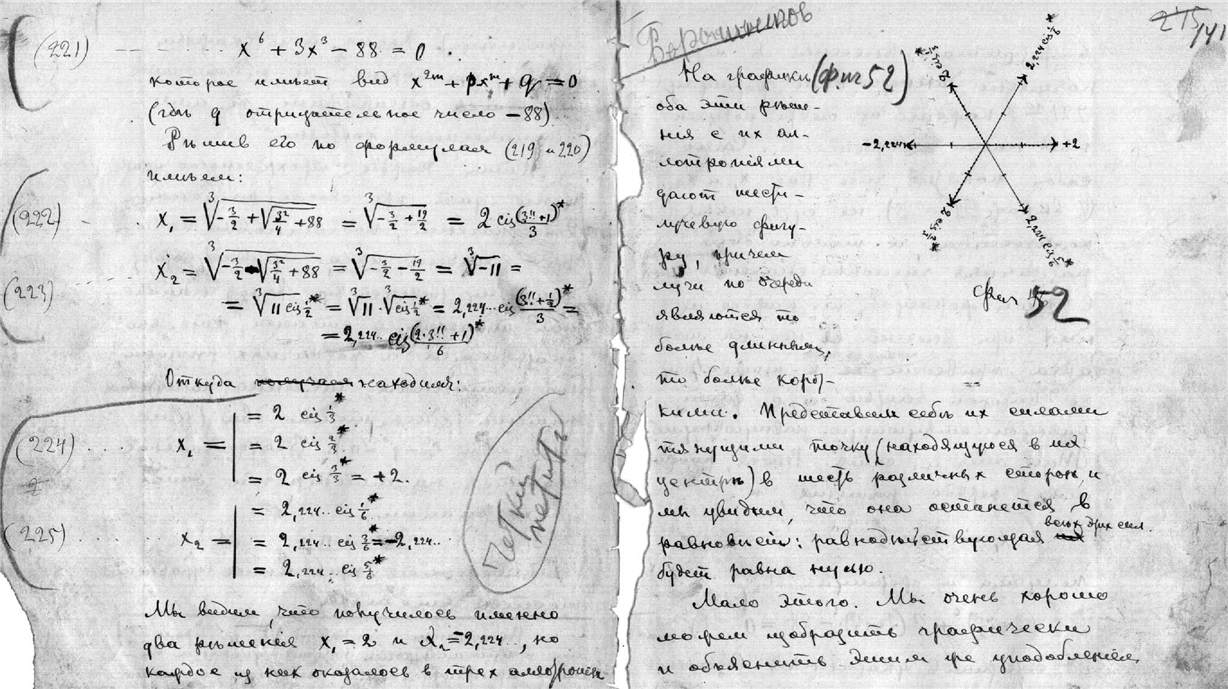 (221) x⁶ + 3x³ − 88 = 0.
которое имѣет вид x²ᵐ + pxᵐ + q = 0
(гдѣ q отрицателеное число −88)
Рѣшив его по формулам (219 и 220)
имѣем:
(222) x₁ = ∛(−3/2 + √(3²/4 + 88)) = ∛(−3/2 + 19/2) = 2 cis (3!!+1)/3*
(223) x₂ = ∛(−3/2 − √(3²/4 + 88)) = ∛(−3/2 − 19/2) = ∛−11 =
= ∛(11 cis 1/2*) = ∛11 · ∛(cis 1/2*) = 2,224... cis (3!!+1/2)/3* =
= 2,224.. cis (2·3!!+1)/6*
Откуда находим:
(224) x₁ = | = 2 cis 1/3*
= 2 cis 2/3*
= 2 cis 3/3* = +2.
(225) x₂ = | = 2,224.. cis 1/6*
= 2,224... cis 3/6* = −2,224..
= 2,224... cis 5/6*
Петит
петить
Мы видим, что получилось именно
два рѣшенія x₁ = 2 и x₂ = −2,224.., но
каждое из них оказалось в трех аллотропіях
Воронников
245
141
На графики (фиг 52)
оба эти рѣше-
нія с их ал-
лотропіями
дают шести-
лучевую фигу-
ру, причем
лучи по очереди
являются то
болѣе длинными,
то болѣе корот-
кими. Представим себѣ их силами
тянущими точку (находящуюся в их
центрѣ) в шесть различных сторон, и
мы увидим, что она останется в
равновѣсіи: равнодѣйствующая всѣх этих сил
будет равна нулю.
Мало этого. Мы очень хорошо
можем изобразить графически
и объяснить этим же уподобленіем
2 cis 1/3*
2,224 cis 1/6*
−2,224
+2
2 cis 2/3*
2,224 cis 5/6*
фиг 52